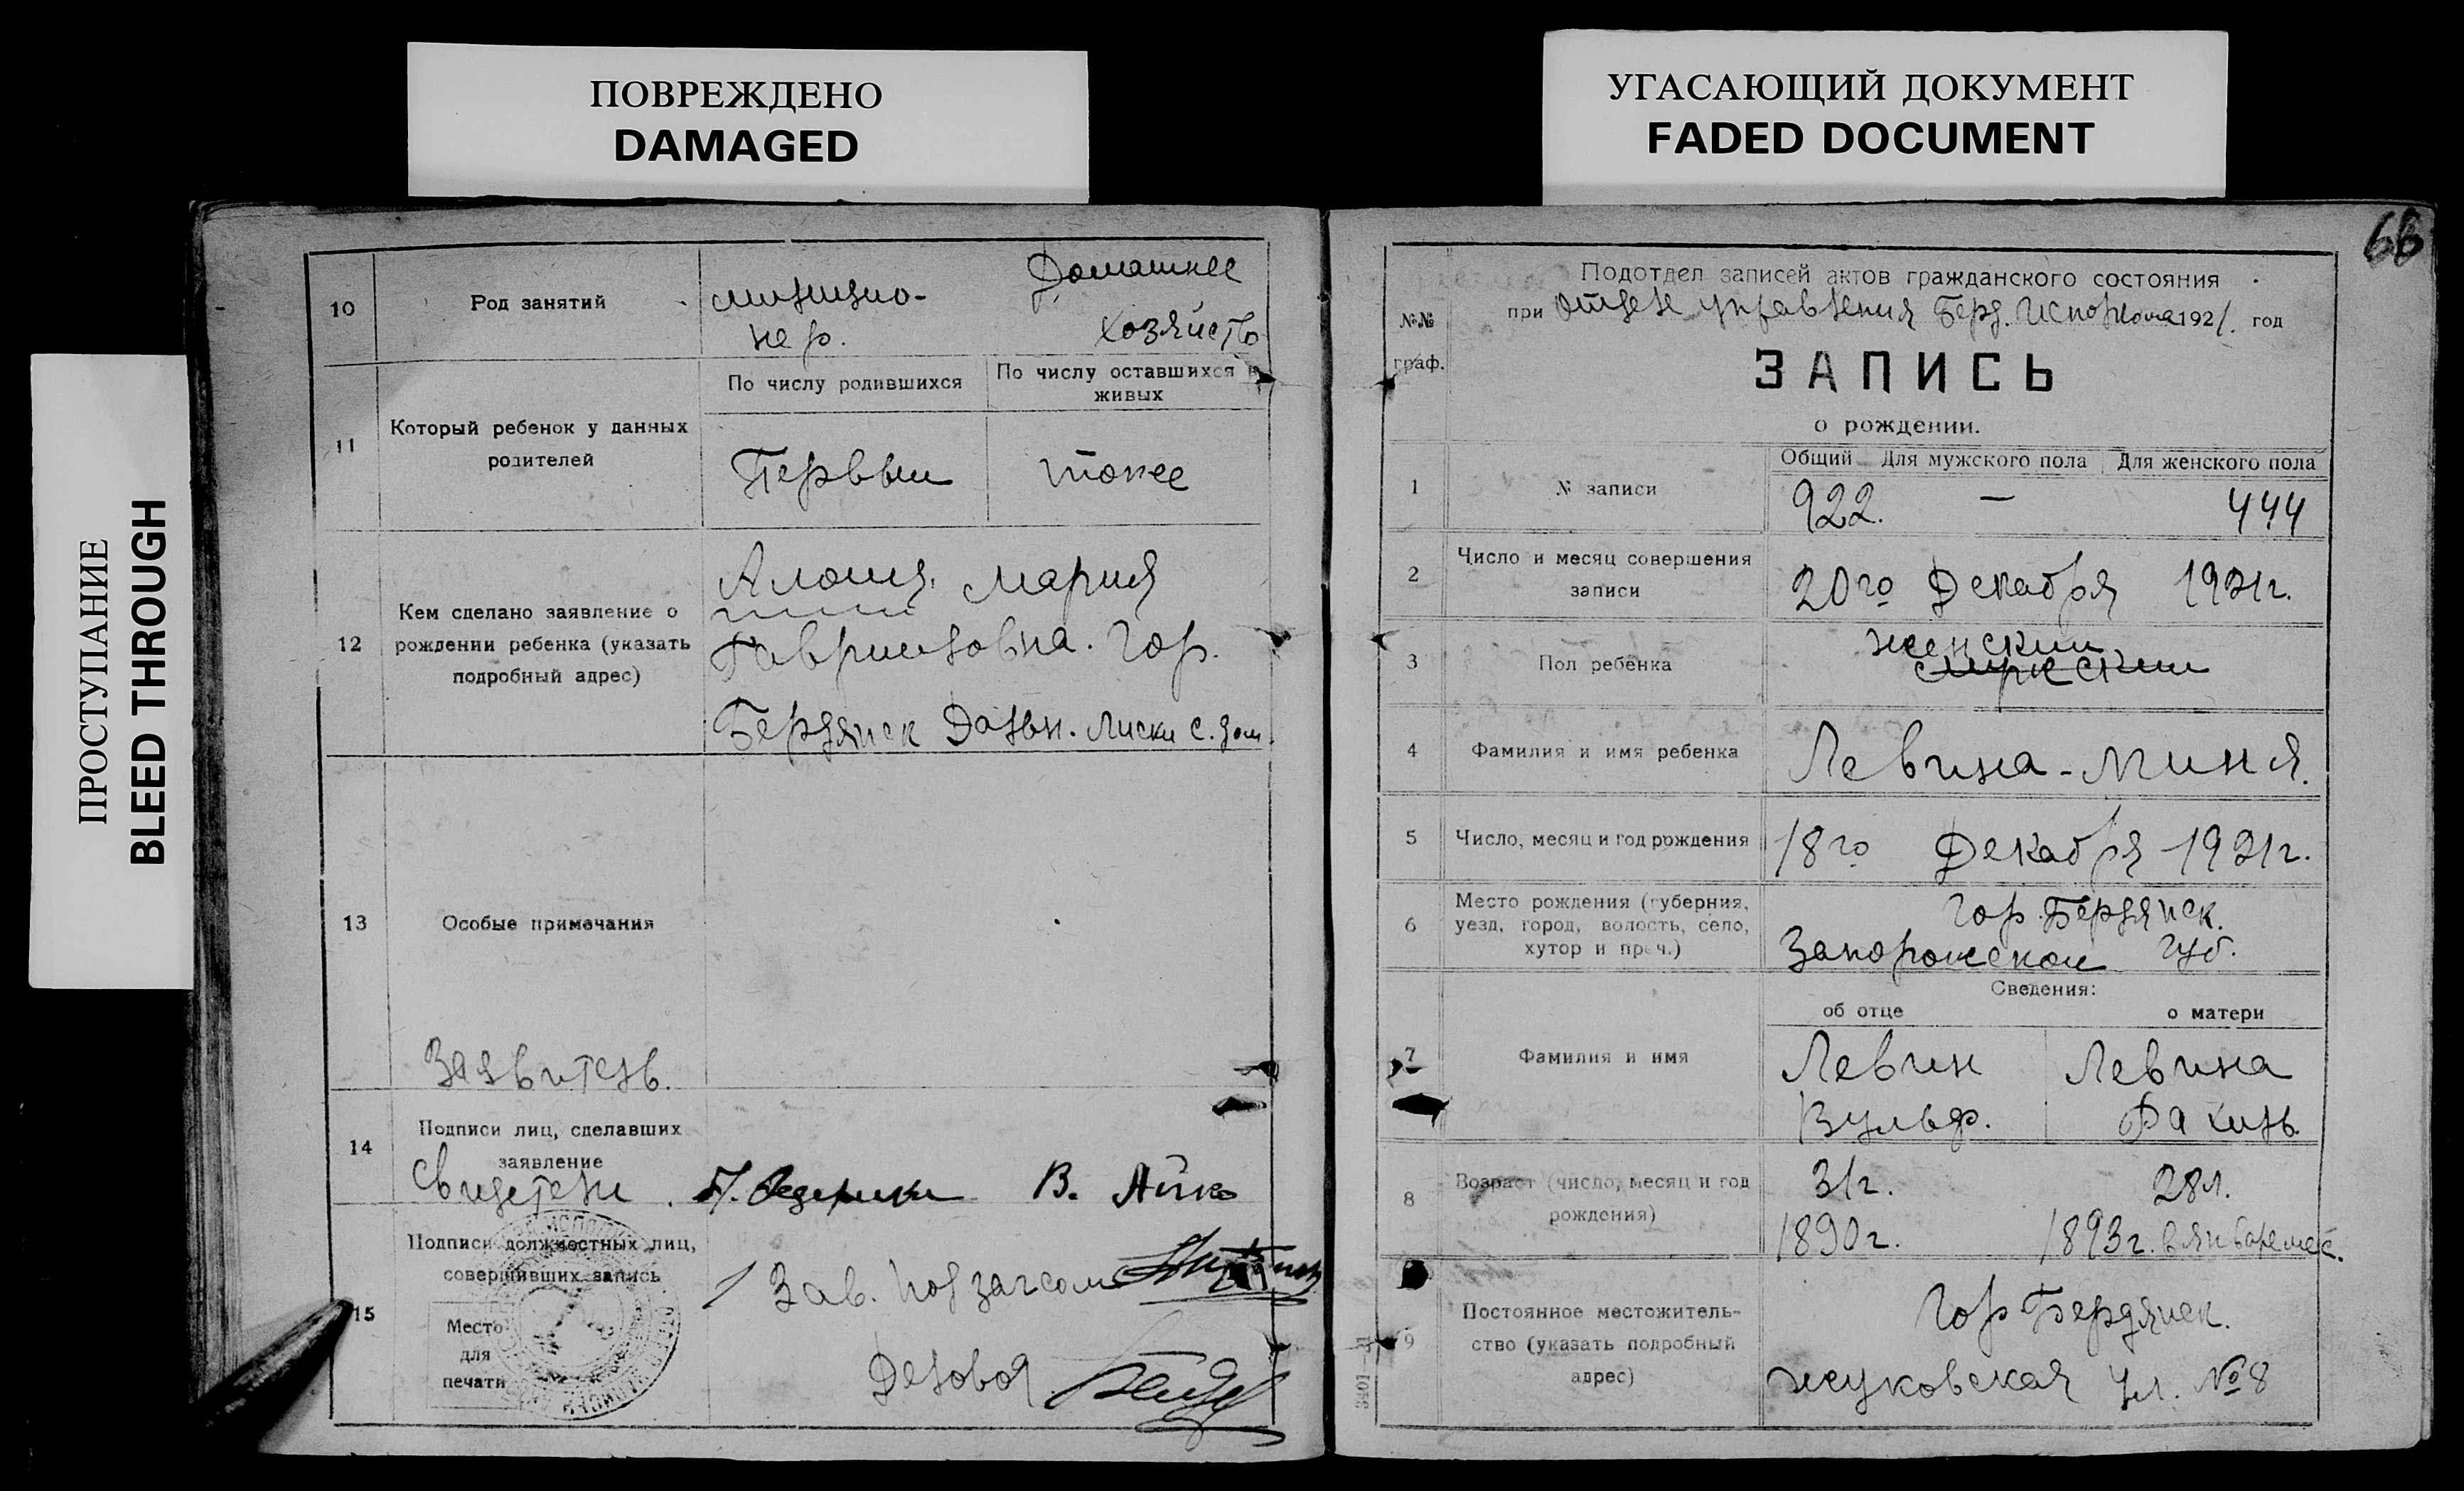 ПОВРЕЖДЕНО
DAMAGED
УГАСАЮЩИЙ ДОКУМЕНТ
FADED DOCUMENT
ПРОСТУПАНИЕ
BLEED THROUGH
10 Род занятий
милицио-
нер.
Домашнее
хозяйств
11 Который ребенок у данных
родителей
По числу родившихся
По числу оставшихся в
живых
Первый
тоже
12 Кем сделано заявление о
рождении ребенка (указать
подробный адрес)
Мария
Гавриловна. Гор.
Бердянск Дальн. Лиски с. дом.
13 Особые примечания
Заявитель.
14 Подписи лиц, сделавших
заявление
Свидетели
В.
15 Подписи должностных лиц,
совершивших запись
Место
для
печати
Зав. Подзагсом
Деловод
66
№№
граф.
Подотдел записей актов гражданского состояния
при Отделе Управления Берд. Исполкома 1921. год
ЗАПИСЬ
о рождении.
1 № записи
Общий Для мужского пола Для женского пола
922. — 444
2 Число и месяц совершения
записи
20го Декабря 1921г.
3 Пол ребенка
женский
мужский
4 Фамилия и имя ребенка
Левина-Миня.
5 Число, месяц и год рождения
18го Декабря 1921г.
6 Место рождения (губерния,
уезд, город, волость, село,
хутор и проч.)
Гор. Бердянск.
Запорожской Губ.
Сведения:
об отце о матери
7 Фамилия и имя
Левин
Вульф.
Левина
Рахиль
8 Возраст (число, месяц и год
рождения)
31г. 28л.
1890г. 1893г. в январе мес.
9 Постоянное местожитель-
ство (указать подробный
адрес)
Гор Бердянск.
жуковская ул. №8
3401—21